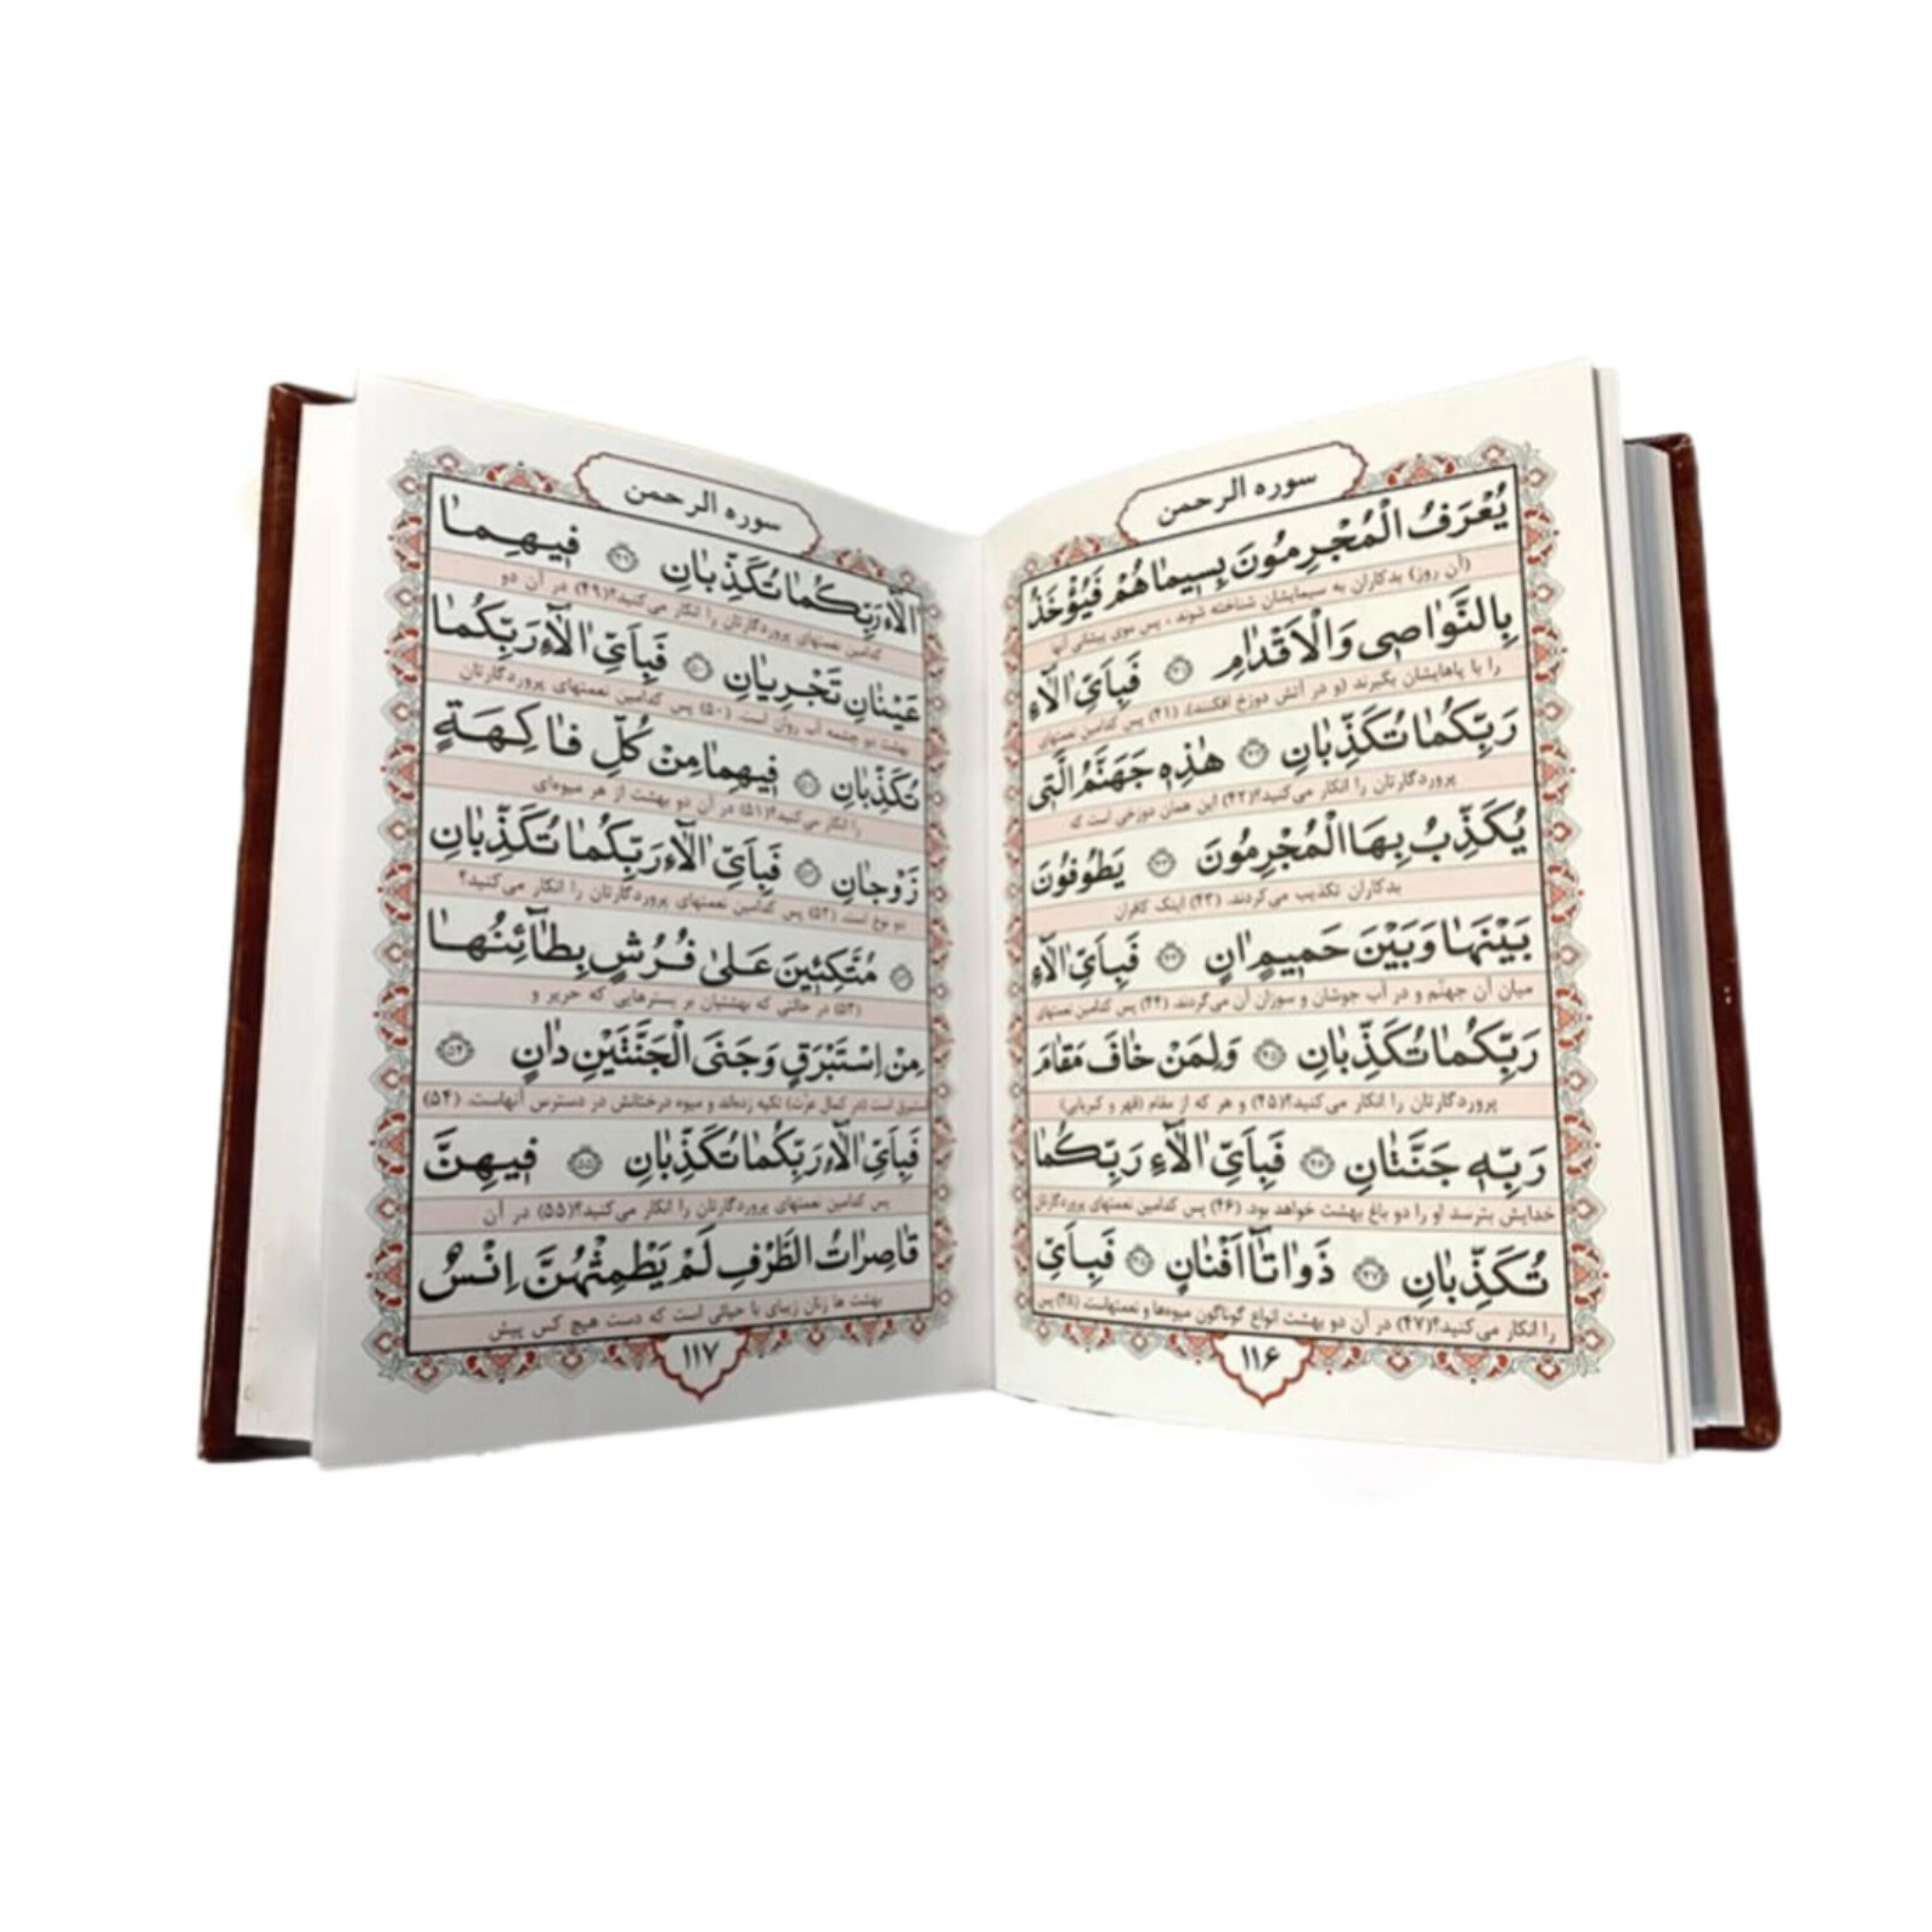 سوره الرحمن
يُعْرَفُ الْمُجْرِمُونَ بِسِيمٰاهُمْ فَيُؤْخَذُ
(آن روز) بدکاران به سیمایشان شناخته شوند ، پس موی پیشانی آنها
بِالنَّوٰاصِي وَالْاَقْدٰامِ ﴿۴۱﴾ فَبِاَيِّ اٰلٰٓاءِ
را با پاهایشان بگیرند (و در آتش دوزخ افکنند). (۴۱) پس کدامین نعمتهای
رَبِّكُمٰا تُكَذِّبٰانِ ﴿۴۲﴾ هٰذِهِ جَهَنَّمُ الَّتِي
پروردگارتان را انکار می‌کنید؟(۴۲) این همان دوزخی است که
يُكَذِّبُ بِهَا الْمُجْرِمُونَ ﴿۴۳﴾ يَطُوفُونَ
بدکاران تکذیب می‌کردند. (۴۳) اینک کافران
بَيْنَهٰا وَبَيْنَ حَمِيمٍ اٰنٍ ﴿۴۴﴾ فَبِاَيِّ اٰلٰٓاءِ
میان آن جهنّم و در آب جوشان و سوزان آن می‌گردند. (۴۴) پس کدامین نعمتهای
رَبِّكُمٰا تُكَذِّبٰانِ ﴿۴۵﴾ وَلِمَنْ خٰافَ مَقٰامَ
پروردگارتان را انکار می‌کنید؟(۴۵) و هر که از مقام (قهر و کبریایی)
رَبِّهِ جَنَّتٰانِ ﴿۴۶﴾ فَبِاَيِّ اٰلٰٓاءِ رَبِّكُمٰا
خدایش بترسد او را دو باغ بهشت خواهد بود. (۴۶) پس کدامین نعمتهای پروردگارتان
تُكَذِّبٰانِ ﴿۴۷﴾ ذَوٰاتٰٓا اَفْنٰانٍ ﴿۴۸﴾ فَبِاَيِّ
را انکار می‌کنید؟(۴۷) در آن دو بهشت انواع گوناگون میوه‌ها و نعمتهاست. (۴۸) پس
۱۱۶
سوره الرحمن
اٰلٰٓاءِ رَبِّكُمٰا تُكَذِّبٰانِ ﴿۴۹﴾ فِيهِمٰا
کدامین نعمتهای پروردگارتان را انکار می‌کنید؟(۴۹) در آن دو
عَيْنٰانِ تَجْرِيٰانِ ﴿۵۰﴾ فَبِاَيِّ اٰلٰٓاءِ رَبِّكُمٰا
بهشت دو چشمه آب روان است. (۵۰) پس کدامین نعمتهای پروردگارتان
تُكَذِّبٰانِ ﴿۵۱﴾ فِيهِمٰا مِنْ كُلِّ فٰاكِهَةٍ
را انکار می‌کنید؟(۵۱) در آن دو بهشت از هر میوه‌ای
زَوْجٰانِ ﴿۵۲﴾ فَبِاَيِّ اٰلٰٓاءِ رَبِّكُمٰا تُكَذِّبٰانِ
دو نوع است. (۵۲) پس کدامین نعمتهای پروردگارتان را انکار می‌کنید؟
﴿۵۳﴾ مُتَّكِئِينَ عَلىٰ فُرُشٍ بَطٰٓائِنُهٰا
(۵۳) در حالتی که بهشتیان بر بسترهایی که حریر و
مِنْ اِسْتَبْرَقٍ وَجَنَى الْجَنَّتَيْنِ دٰانٍ ﴿۵۴﴾
استبرق است (در کمال عزّت) تکیه زده‌اند و میوه درختانش در دسترس آنهاست. (۵۴)
فَبِاَيِّ اٰلٰٓاءِ رَبِّكُمٰا تُكَذِّبٰانِ ﴿۵۵﴾ فِيهِنَّ
پس کدامین نعمتهای پروردگارتان را انکار می‌کنید؟(۵۵) در آن
قٰاصِرٰاتُ الطَّرْفِ لَمْ يَطْمِثْهُنَّ اِنْسٌ
بهشت ها زنان زیبای با حیائی است که دست هیچ کس پیش
۱۱۷